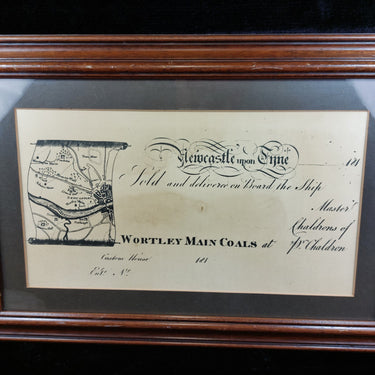 Newcastle upon Tyne 181
Sold and deliver'd on Board the Ship
Master
Chaldrons of
WORTLEY MAIN COALS at pr. Chaldron
Custom House 181
Ent. No.
NEWCASTLE